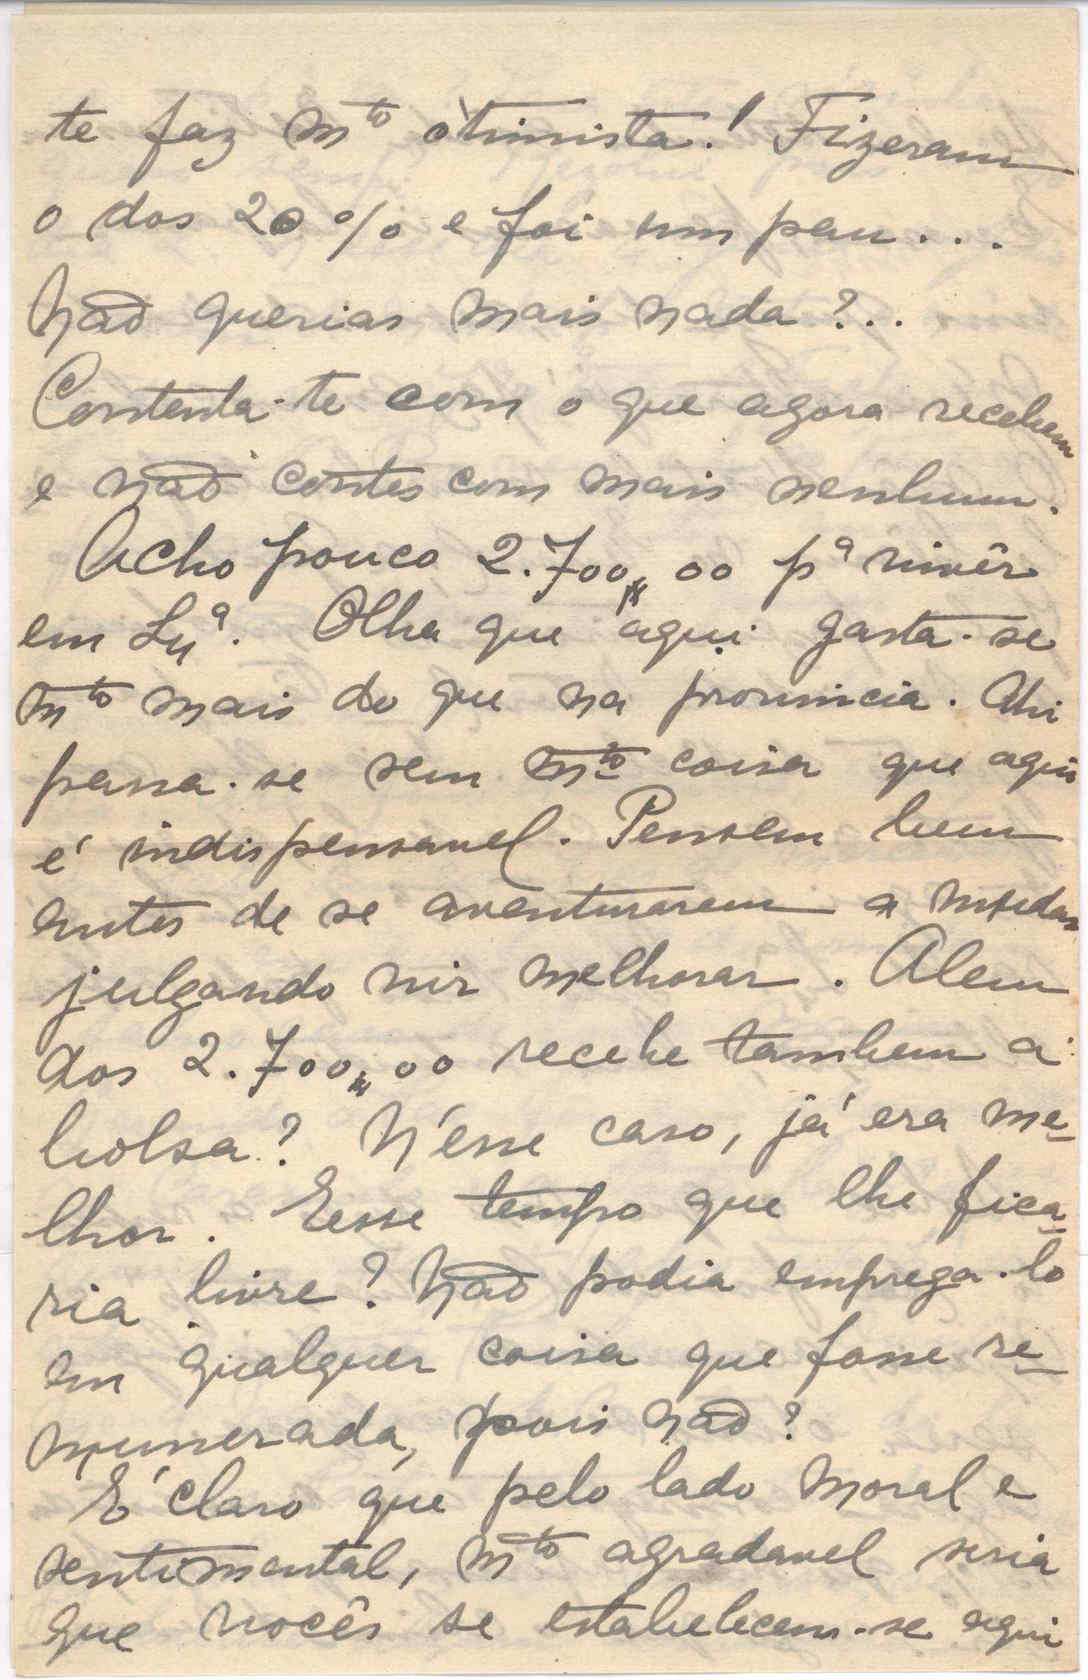 te faz mto òtimista! Fizeram
o dos 20% e foi um pau...
Não querias mais nada?..
Contenta-te com o que agora recebem
e não contes com mais nenhum.
Acho pouco 2.700$00 pª vivêr
em Lxª. Olha que aqui gasta-se
mto mais do que na provincia. Ahi
passa-se sem mta coisa que aqui
é indispensavel. Pensem bem
antes de se aventurarem a mudar
julgando vir melhorar. Alem
dos 2.700$00 recebe tambem a
bolsa? N'ésse caso, já era me-
lhor. E esse tempo que lhe fica-
ria livre? Não podia emprega-lo
em qualquer coisa que fosse re-
munerada, pois não?
É claro que pelo lado moral e
sentimental, mto agradavel seria
que vocês se estabelecem-se aqui